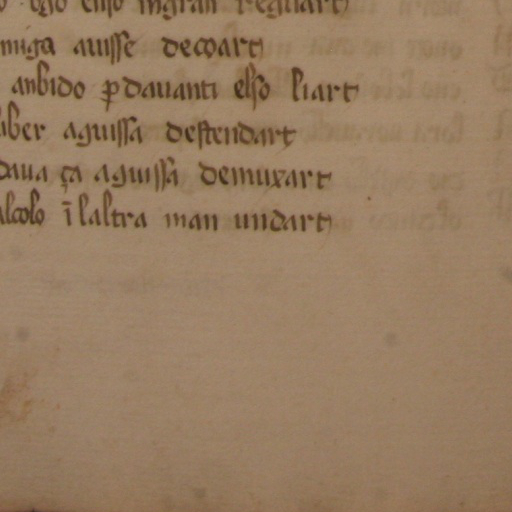 ingran reguart
miga auisse decoart
anbido ꝑdauanti elso liart
aguissa destendart
daua ça aguissa demuxart
alcolo ī laltra man un dart